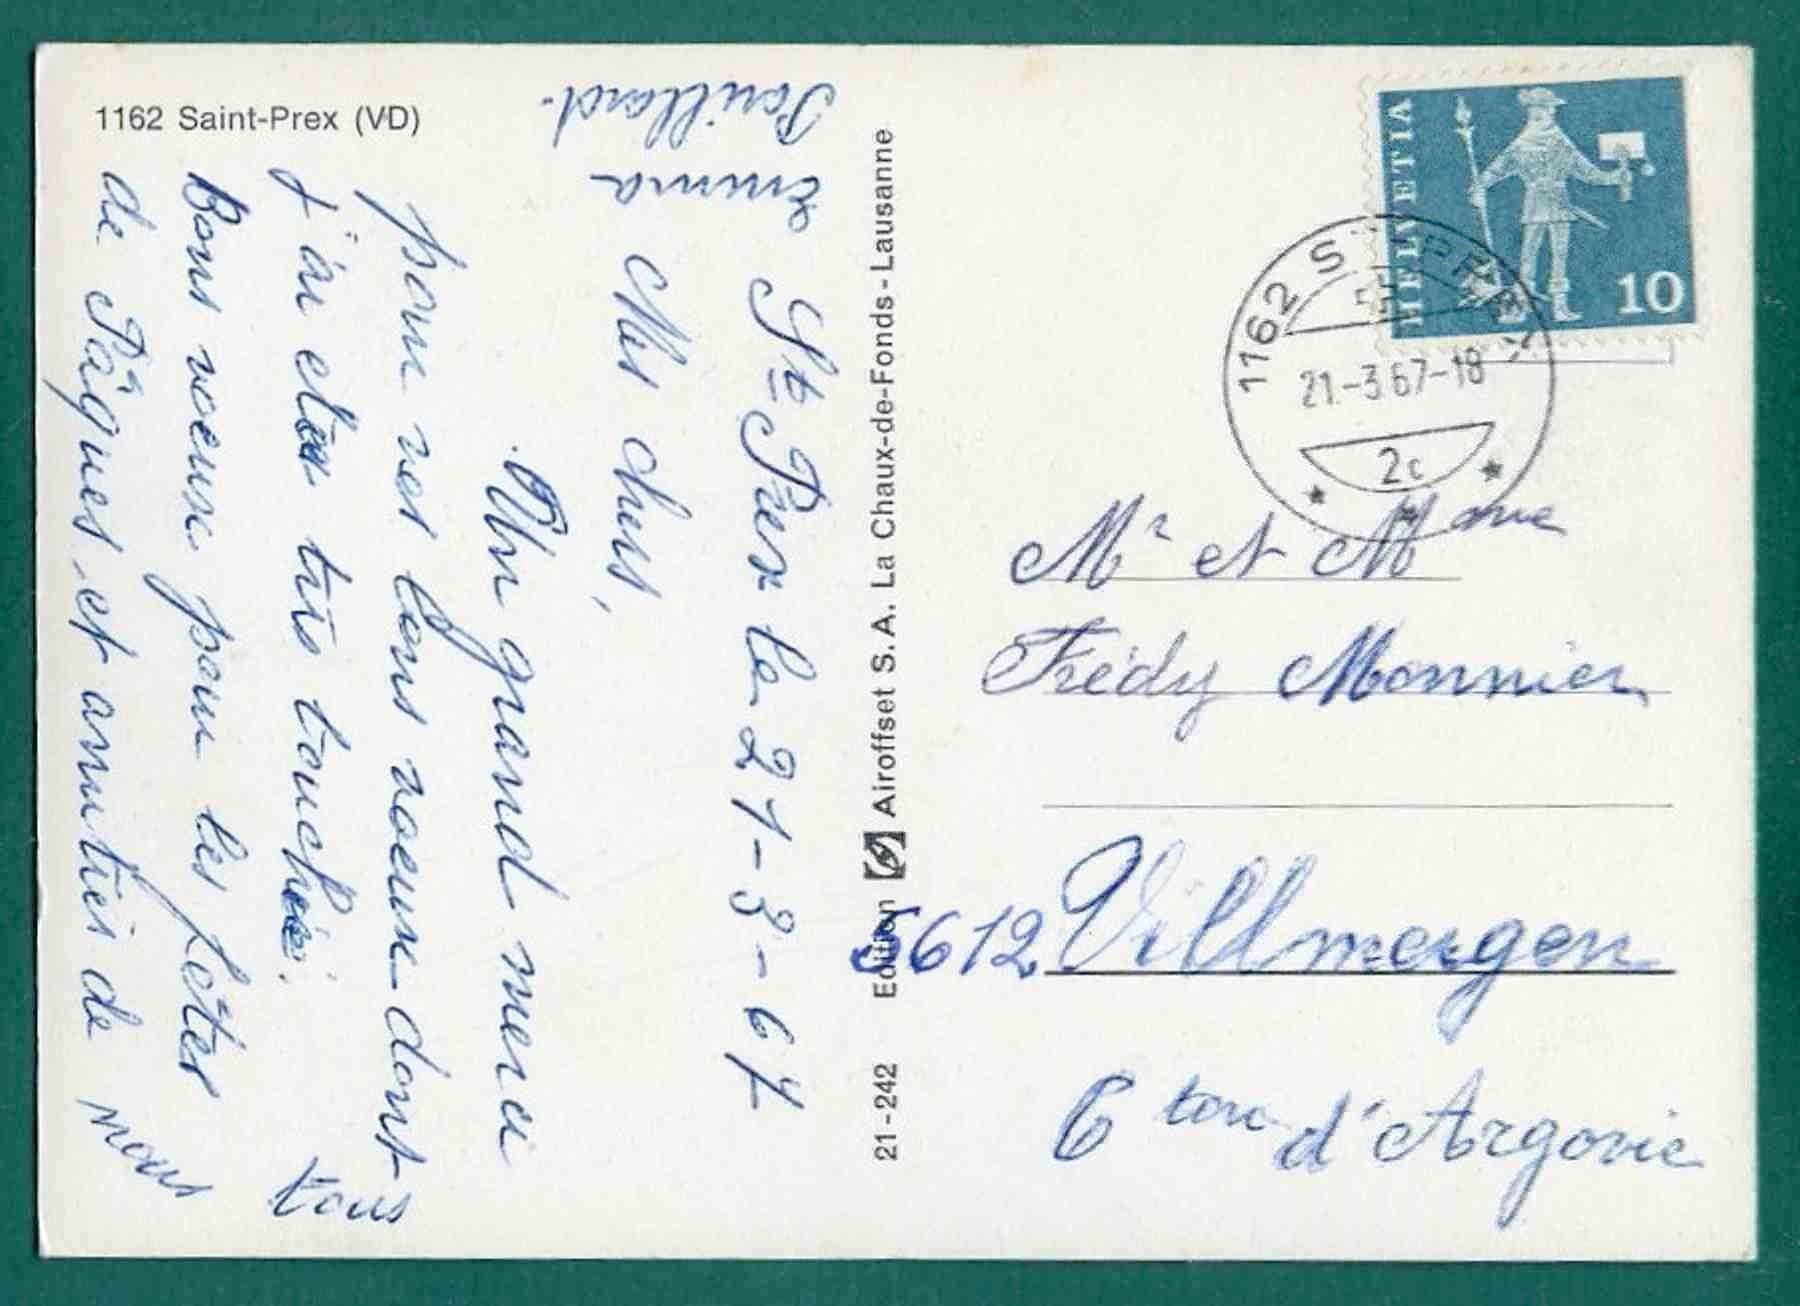 1162 Saint-Prex (VD)
St Prex le 21-3-67
Mes chers,
Un grand merci
pour vos bons voeux dont
j'ai etée très touchée.
Bons voeux pour les fêtes
de Pâques et amitiés de nous
tous
Emma
21-242 Edition Airoffset S. A. La Chaux-de-Fonds - Lausanne
HELVETIA
10
1162 ST-PREX
21.-3.67-18
2c
Mr et Mme
Frédy Monnier
5612 Villmergen
Cton d'Argovie